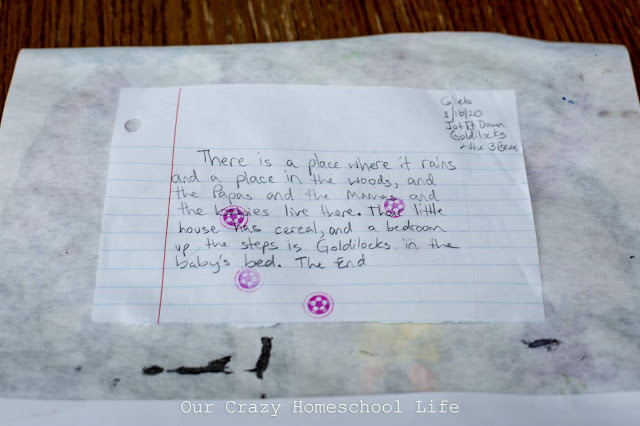 Caleb
3/16/20
Jot It Down
Goldilocks
+ the 3 Bears
There is a place where it rains
and a place in the woods, and
the Papas and the Mamas and
the babies live there. Their little
house has cereal, and a bedroom
up the steps is Goldilocks in the
baby's bed. The End
Our Crazy Homeschool Life